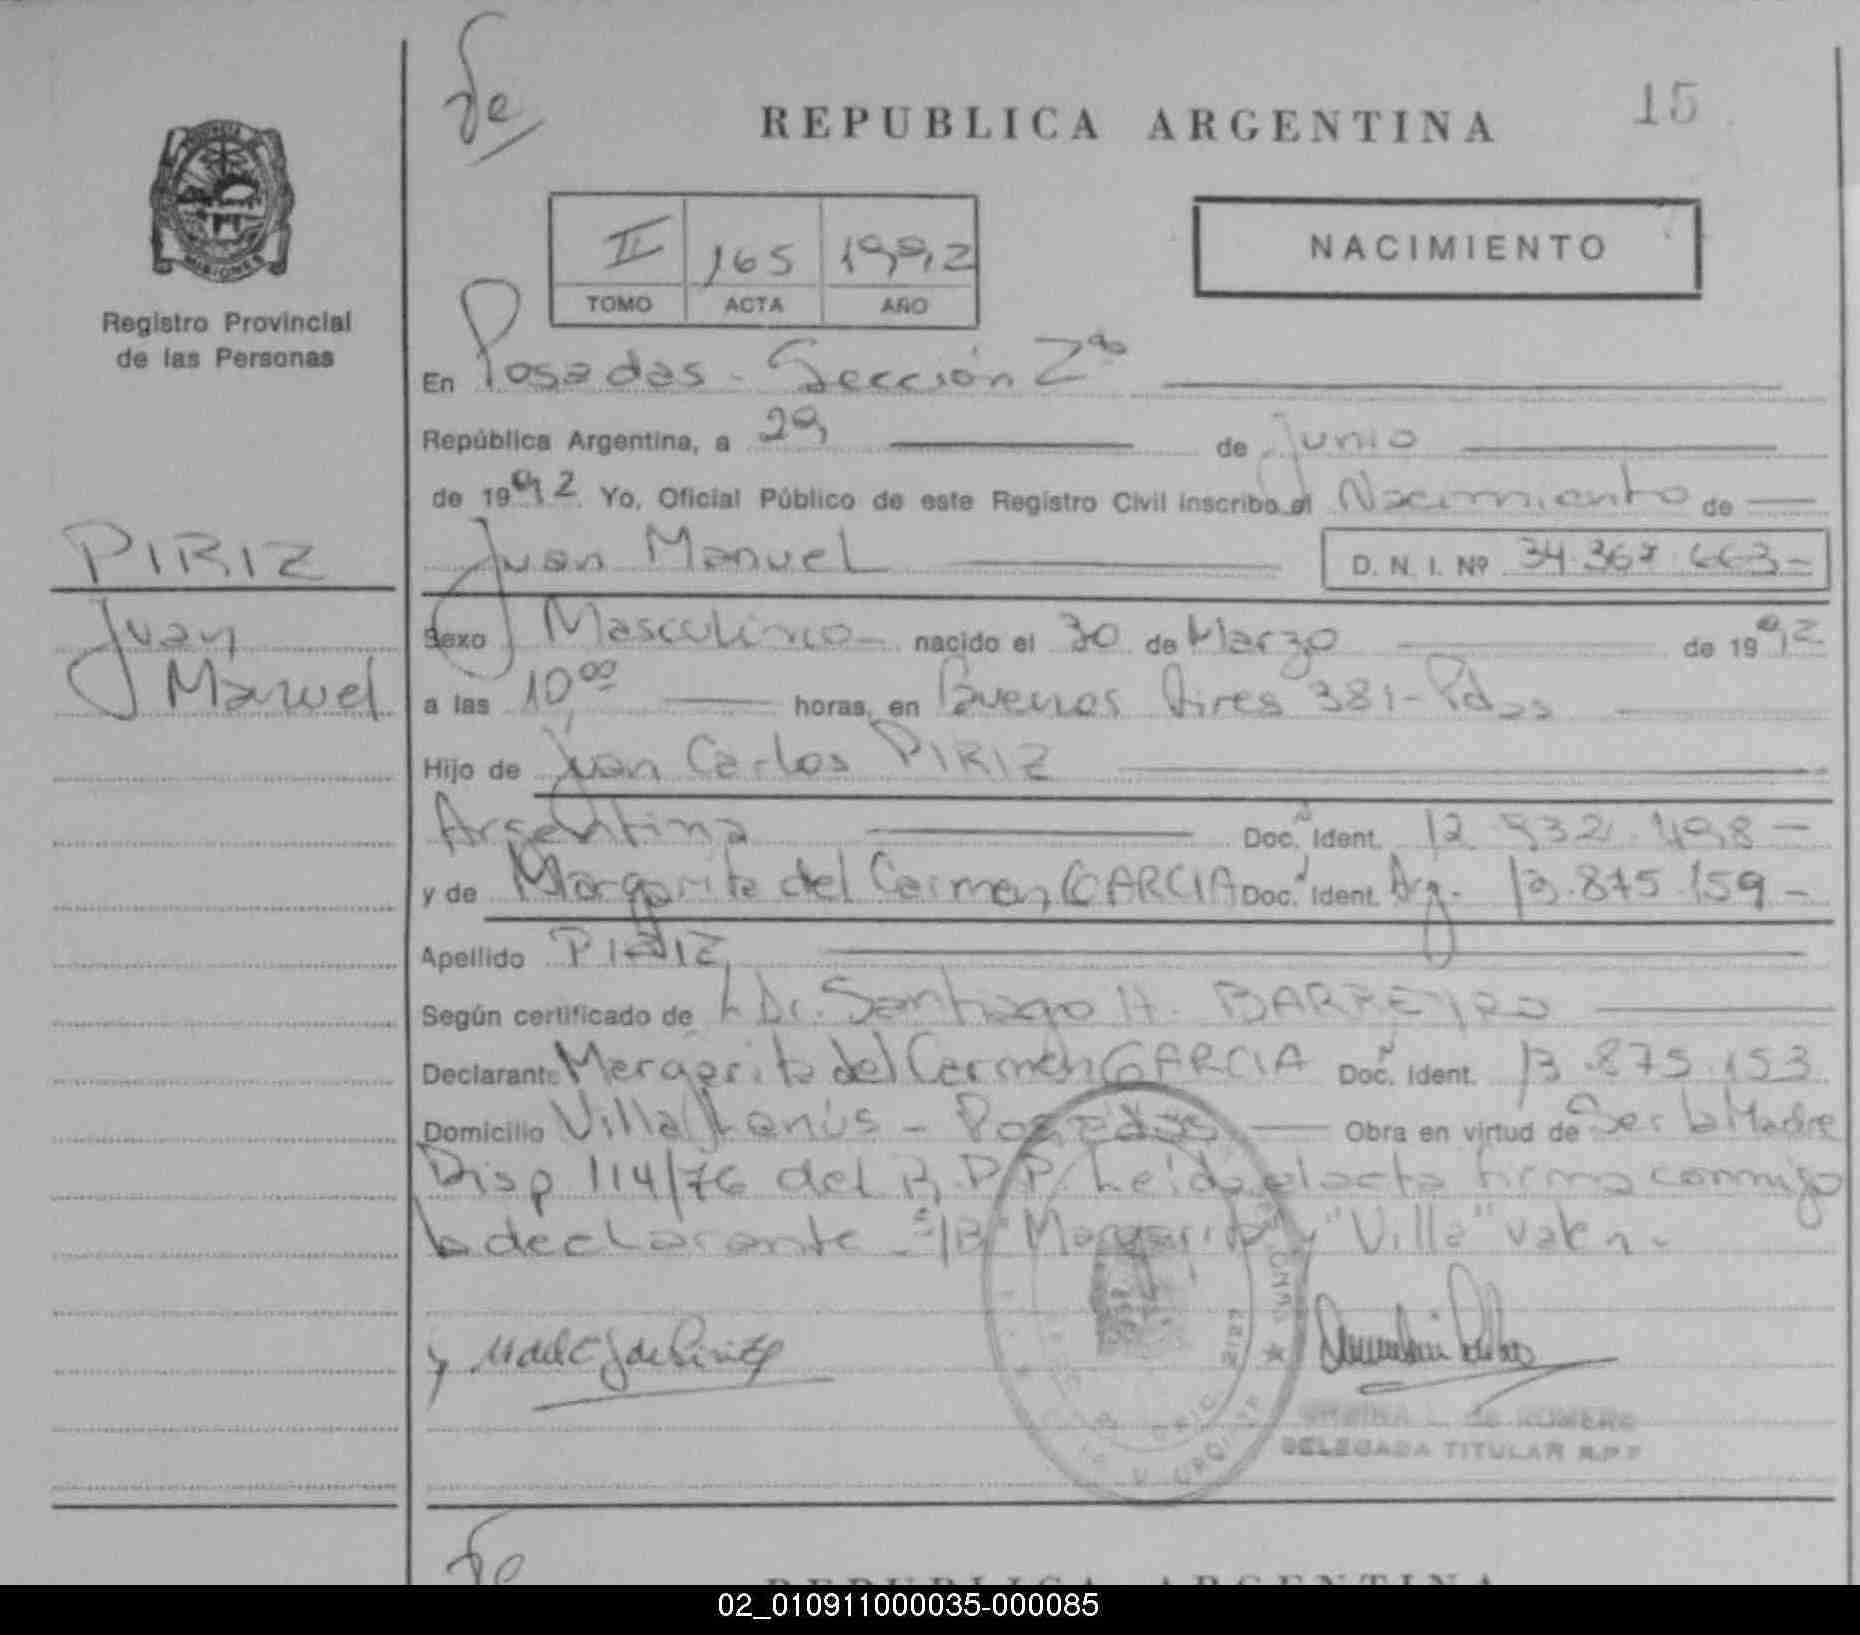 de
REPUBLICA ARGENTINA 15
MISIONES
Registro Provincial
de las Personas
II 165 1992
TOMO ACTA AÑO
NACIMIENTO
En Posadas - Sección 2da
República Argentina, a 29 de Junio
de 1992 Yo, Oficial Público de este Registro Civil inscribo el Nacimiento de
PIRIZ
Juan Manuel
Juan Manuel D. N. I. Nº 34.367.663-
Sexo Masculino- nacido el 30 de Marzo de 1992
a las 10,00 horas, en Buenos Aires 381-Pdas
Hijo de Juan Carlos PIRIZ
Argentina Doc. Ident. 12.932.498-
y de Margarita del Carmen GARCIA Doc. Ident. Arg. 13.875.159-
Apellido PIRIZ
Según certificado de Dr. Santiago H. BARREYRO
Declarante Margarita del Carmen GARCIA Doc. Ident. 13.875.153
Domicilio Villa Lanús - Posadas Obra en virtud de Ser la Madre
Disp 114/76 del R.P.P. Leida el acta firma conmigo
la declarante - "Margarita y "Villa" valen.-
DELEGADA TITULAR R.P.P
REPUBLICA ARGENTINA
02_010911000035-000085